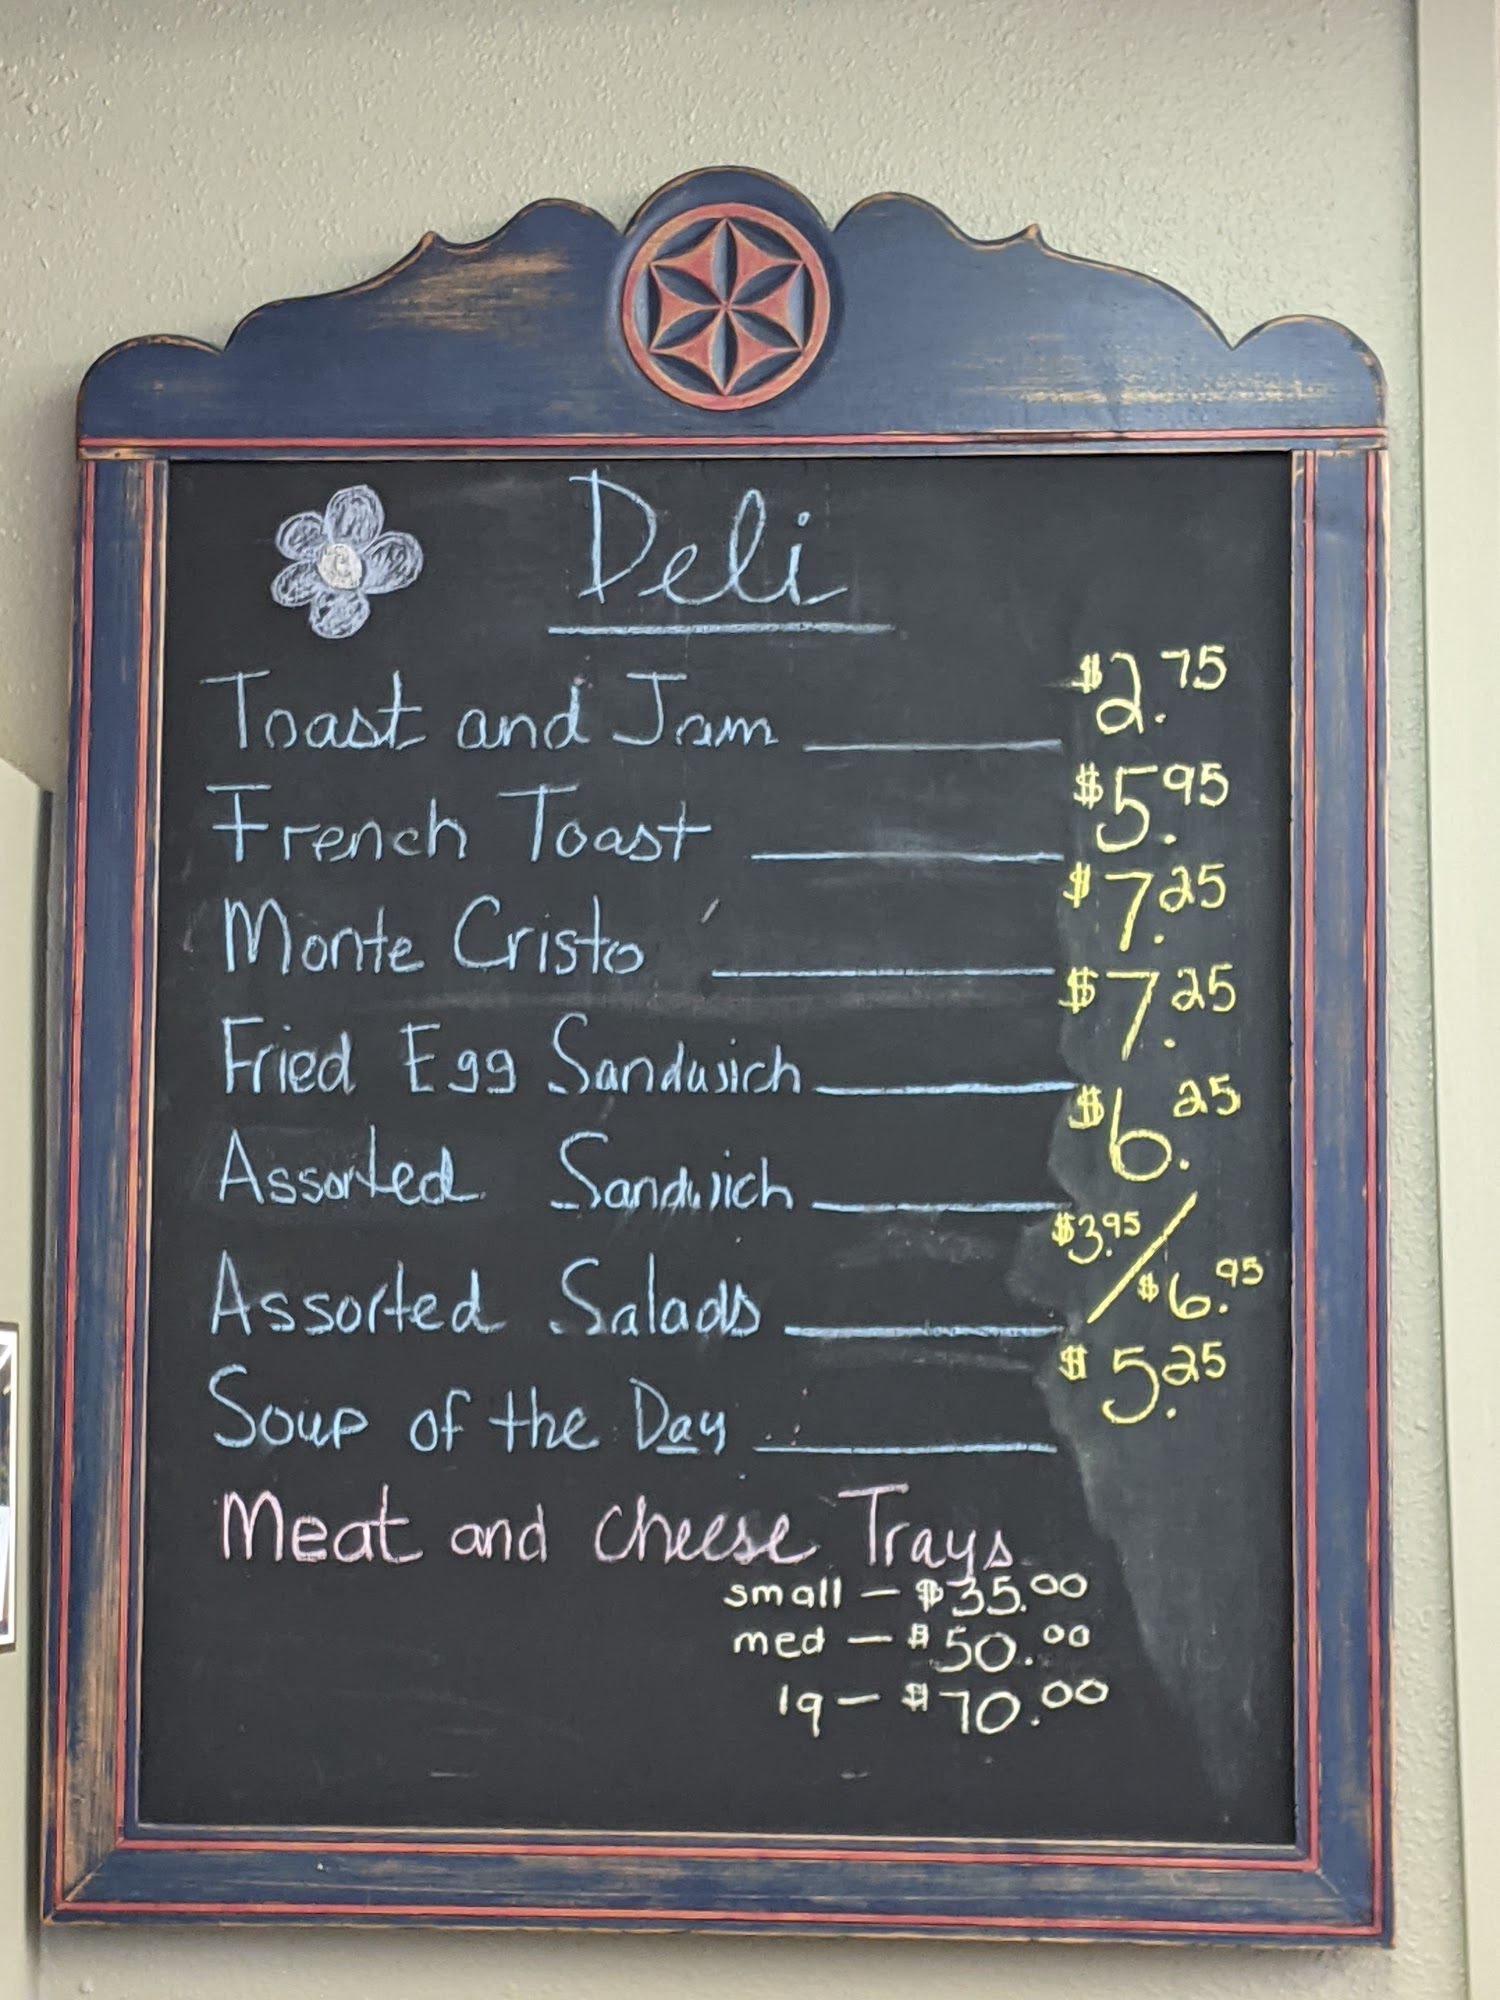 Deli
Toast and Jam $2.75
French Toast $5.95
Monte Cristo $7.25
Fried Egg Sandwich $7.25
Assorted Sandwich $6.25
Assorted Salads $3.95/$6.95
Soup of the Day $5.25
Meat and Cheese Trays
small — $35.00
med — $50.00
lg — $70.00